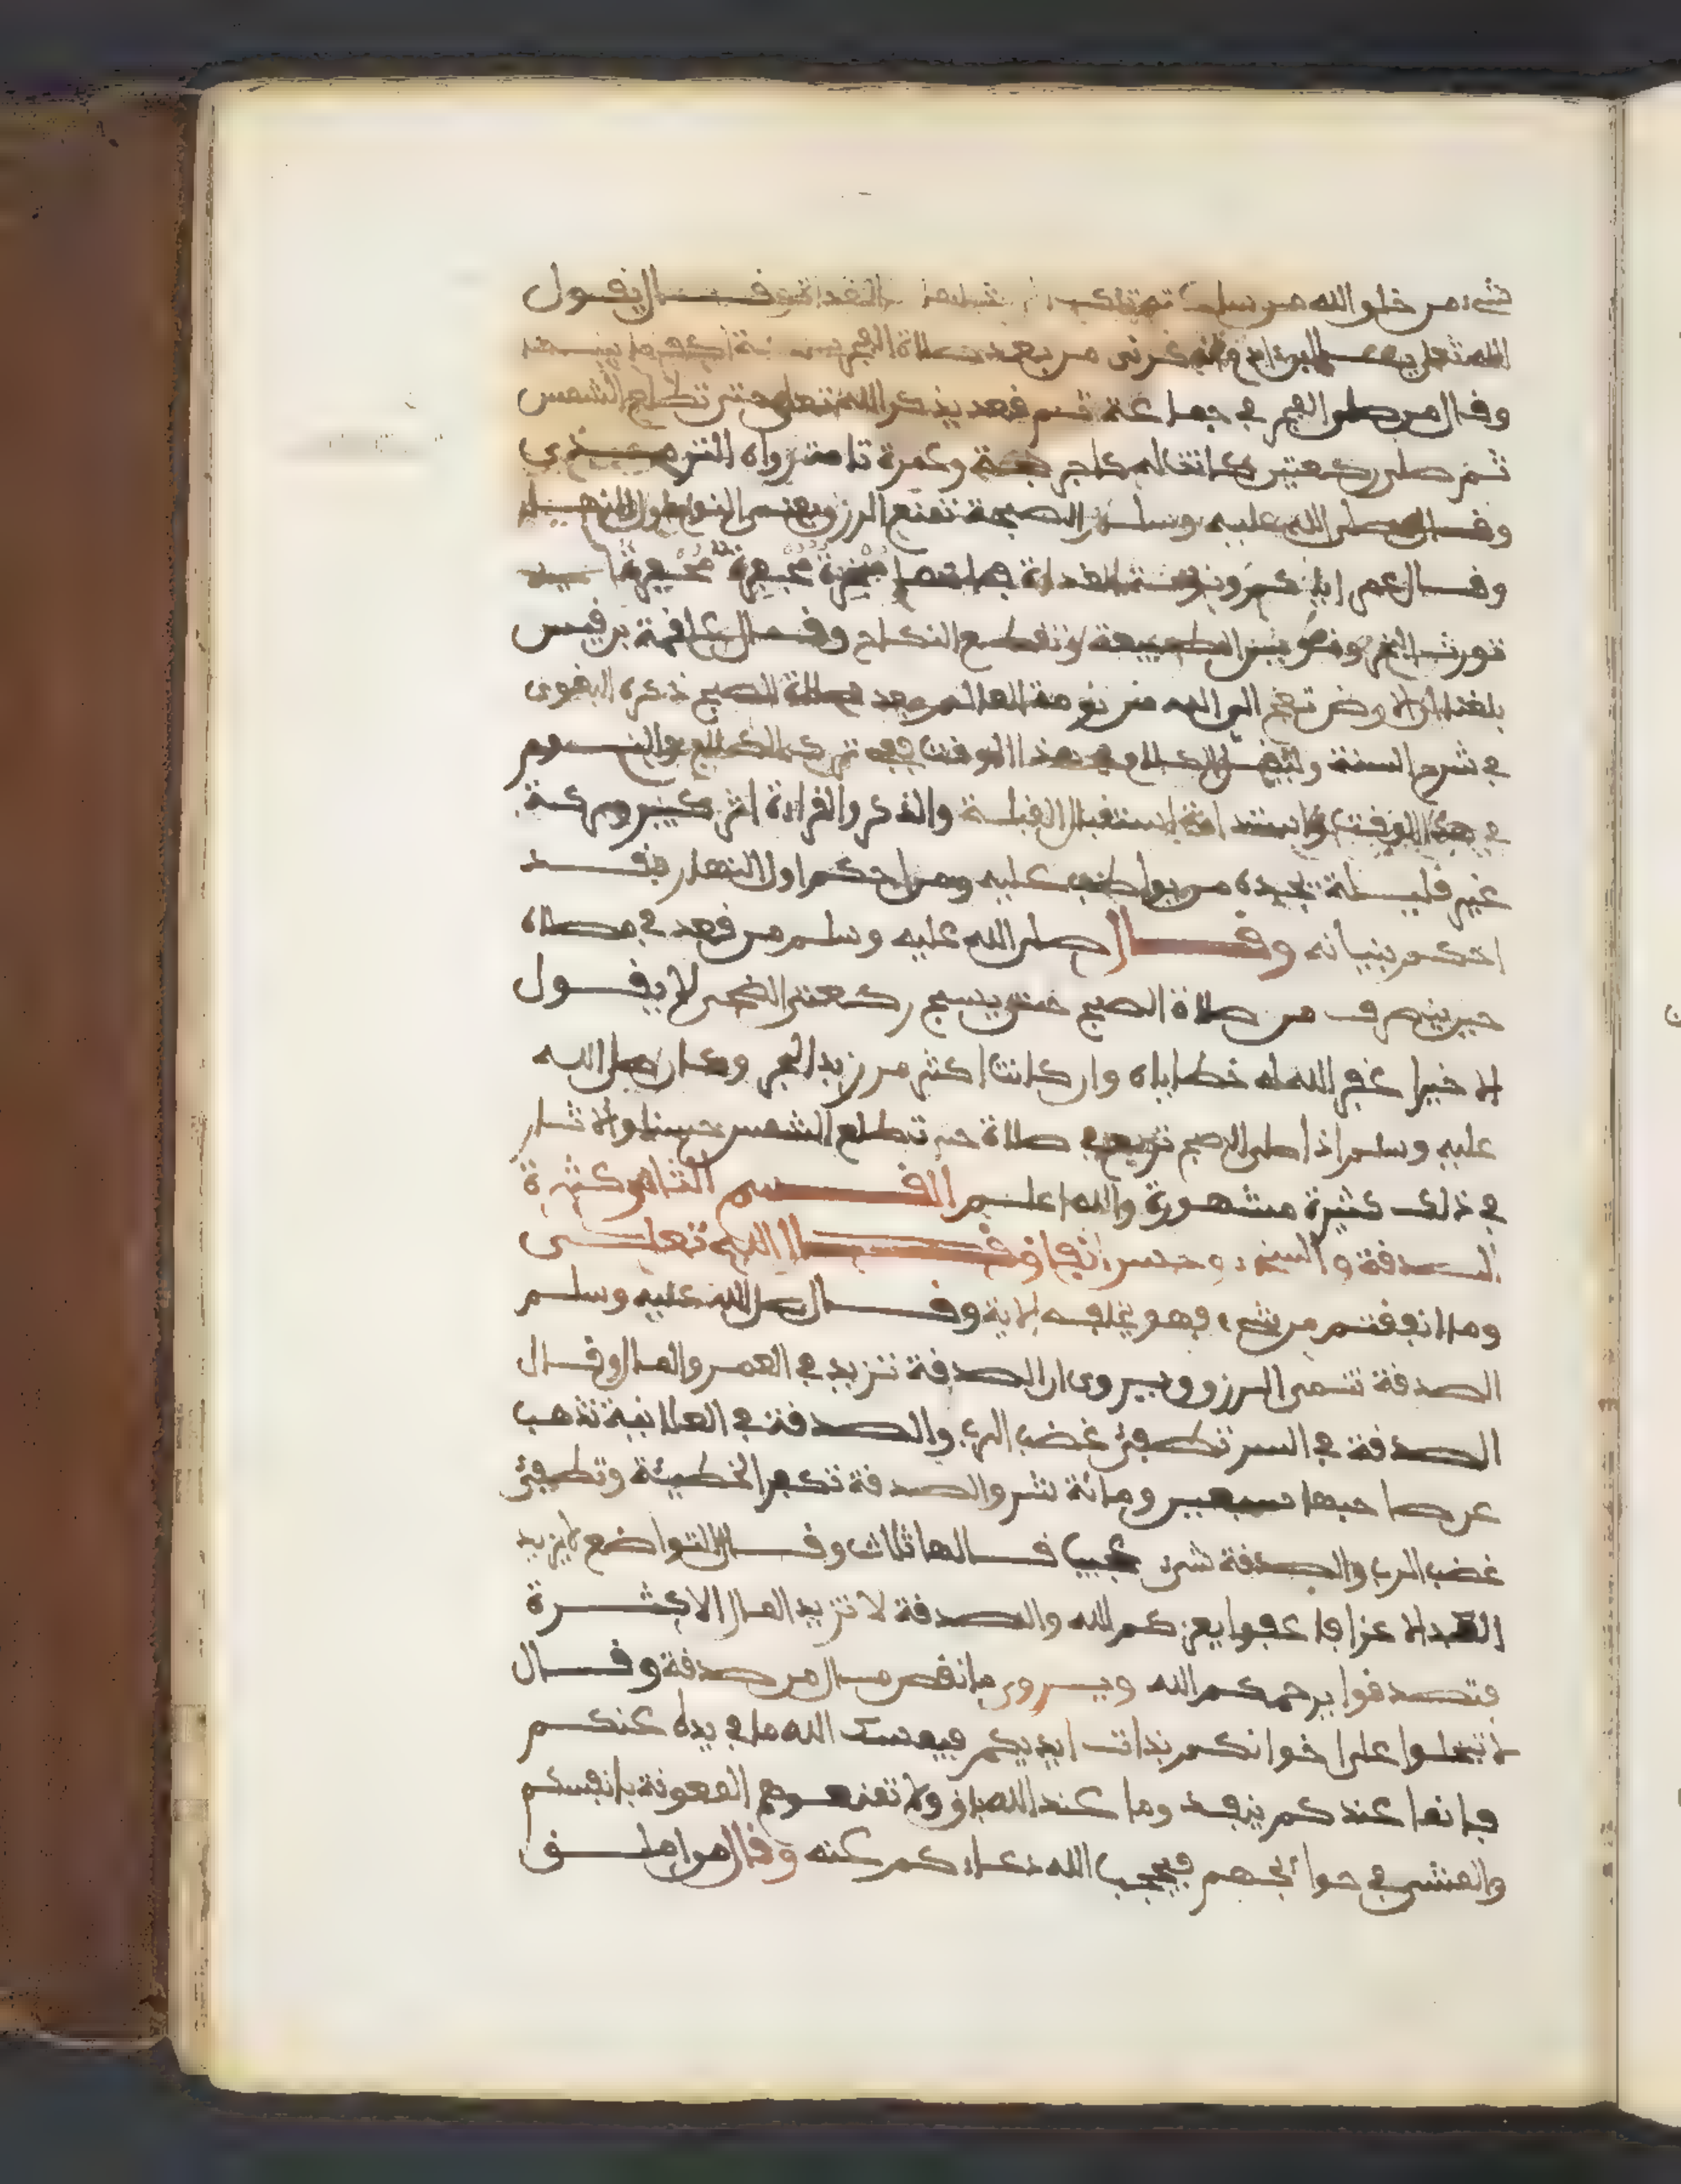 شيء من خلق الله من ساعة تمقتك الغداة قال يقول
الله تعلى يا ابن ادم اذكرني من بعد صلاة الفجر ساعة اكفك ما بينهما
وقال من صلى الفجر في جماعة ثم قعد يذكر الله تعلى حتى تطلع الشمس
ثم صلى ركعتين كانتا له كاجر حجة وعمرة تامتين رواه الترمذي
وقال صلى الله عليه وسلم الصبحة تمنع الرزق يعني النوم اول النهار
وقال عمر اياكم ونومة الغداة فانها مبخرة مجفرة مجعرة
تورث البخر وتقطع النكاح وقال علقمة بن قيس
بلغنا ان الارض تعج الى الله من نومة العالم بعد صلاة الصبح ذكره البغوي
في شرح السنة ولنقص الكلام في هذا الوقت ترك الكلام والنوم
في هذا الوقت واستدامة استقبال القبلة والذكر والقراءة اثر كبير وبركة
غير قليلة تجده من يواظب عليه ومن احكم اول النهار فقد
احكم بنيانه وقال صلى الله عليه وسلم من قعد في مصلاه
حين ينصرف من صلاة الصبح حتى يسبح ركعتي الضحى لا يقول
الا خيرا غفر الله له خطاياه وان كانت اكثر من زبد البحر وكان صلى الله
عليه وسلم اذا صلى الصبح تربع في صلاة حتى تطلع الشمس حسنا والاثار
في ذلك كثيرة مشهورة والله اعلم القسم الثاني كثرة
الصدقة والسخاء وحسن الانفاق قال الله تعلى
وما انفقتم من شيء فهو يخلفه الاية وقال صلى الله عليه وسلم
الصدقة تنمي الرزق ويروى ان الصدقة تزيد في العمر والمال وقال
الصدقة في السر تطفئ غضب الرب والصدقة في العلانية تذهب
عن صاحبها سبعين ومائة شر والصدقة تكفر الخطيئة وتطفئ
غضب الرب والصدقة شيء عجيب قالها ثلاث وقال التواضع لا يزيد
العبد الا عزا فاعفوا يعزكم الله والصدقة لا تزيد المال الا كثرة
فتصدقوا يرحمكم الله ويروى ما نقص مال من صدقة وقال
لا تبخلوا على اخوانكم بذات ايديكم فيمسك الله ما في يده عنكم
فانما عندكم ينفد وما عند الله باق ولا تمنعوهم المعونة بانفسكم
والمشي في حوائجهم فيحجب الله دعاءكم عنه وقال من املق